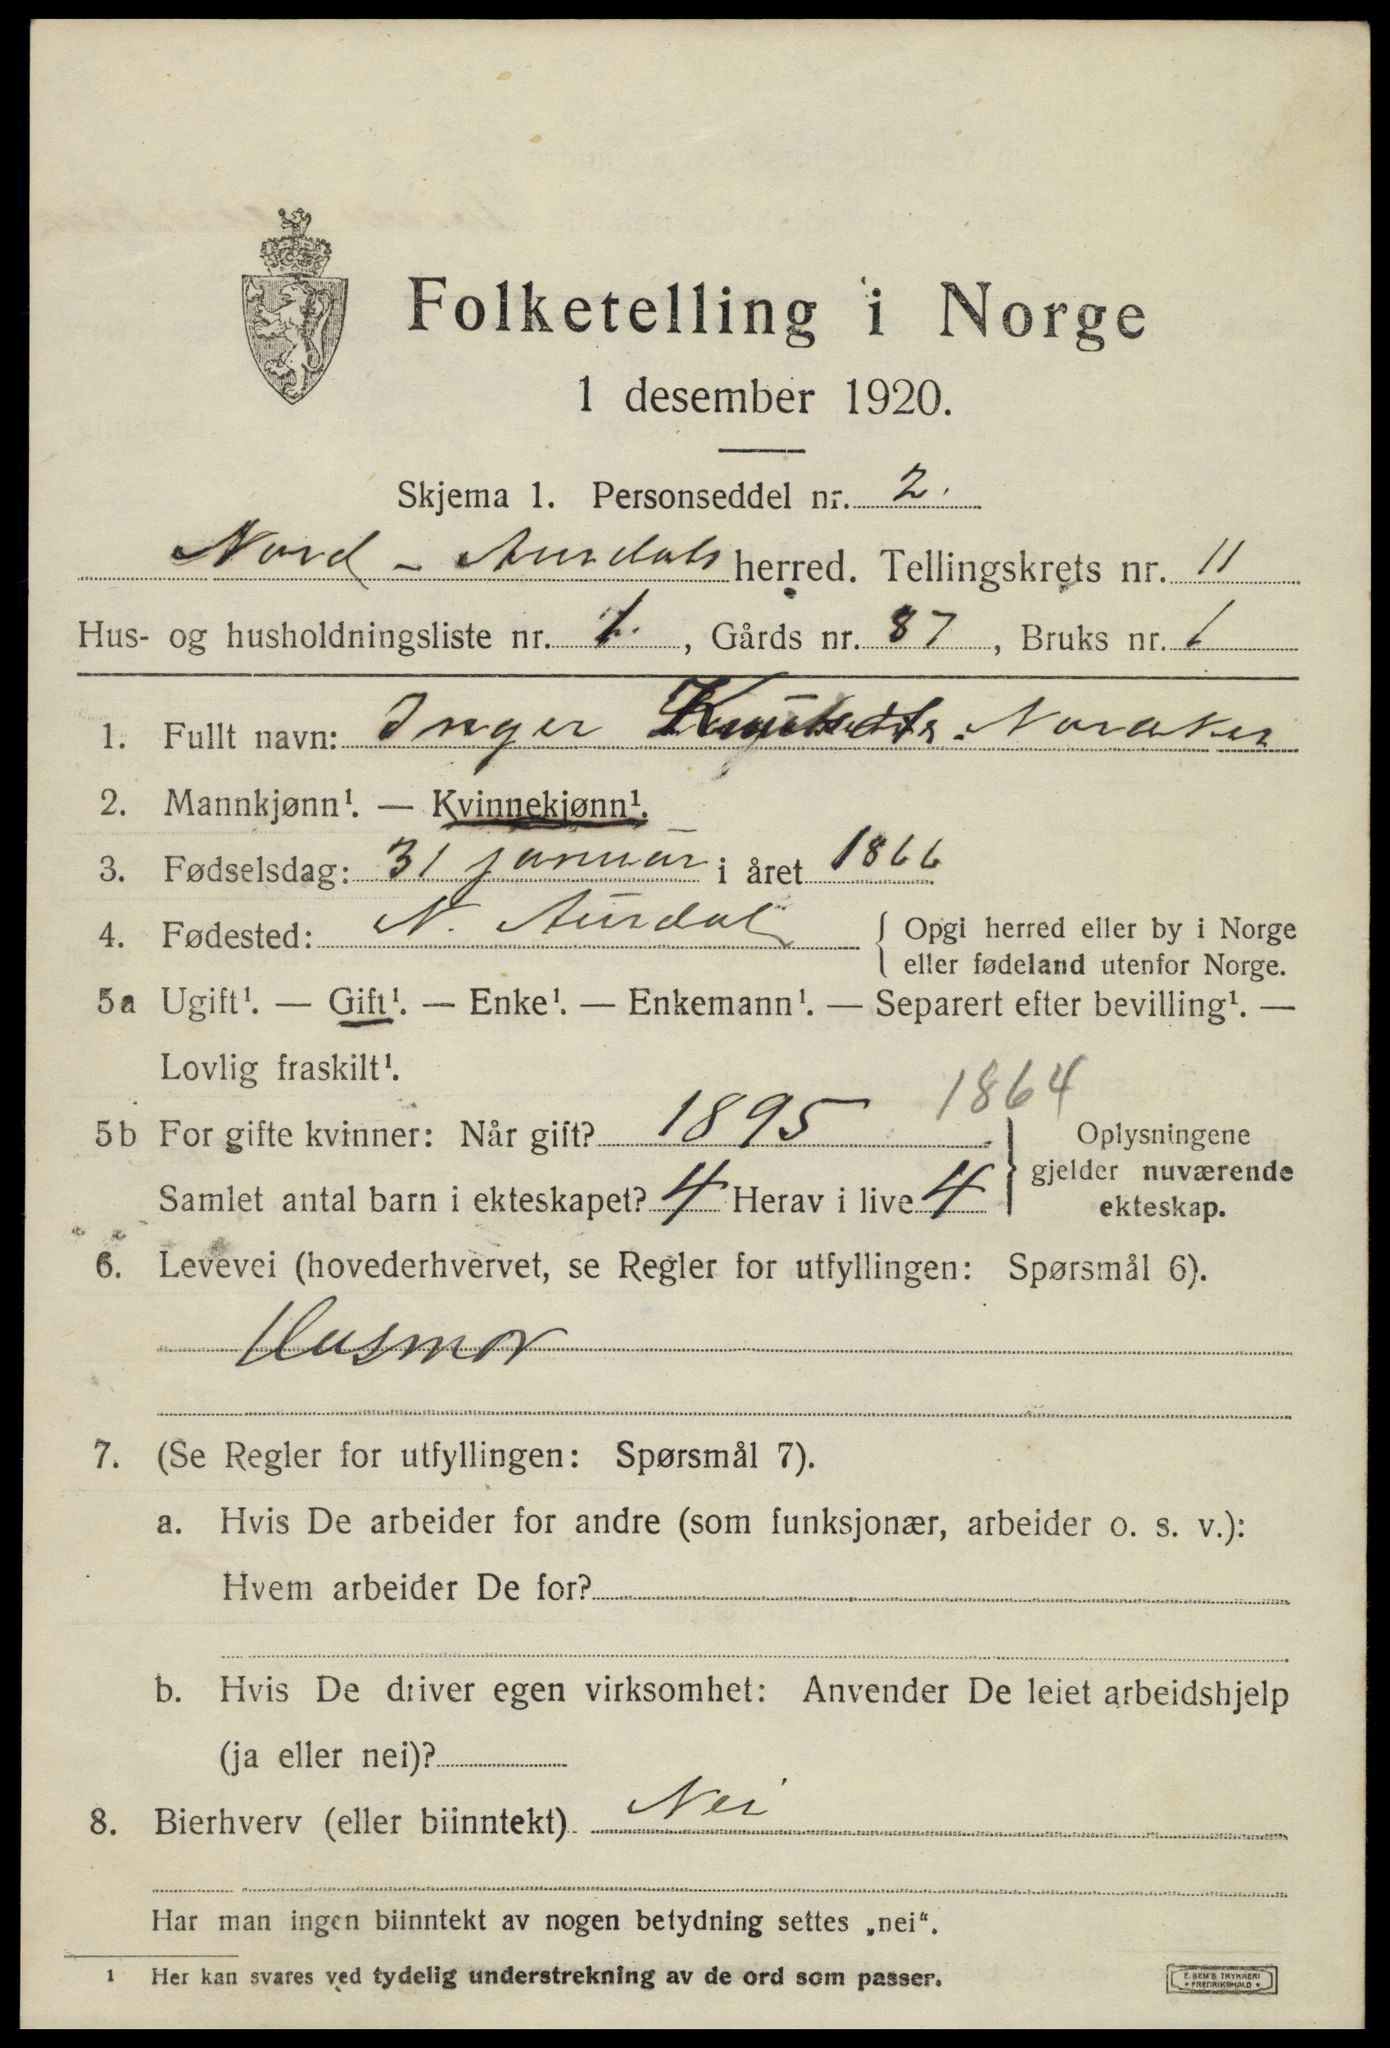 Folketelling i Norge
1 desember 1920.
Skjema 1. Personseddel nr. 2.
Nord - Aurdals herred. Tellingskrets nr. 11
Hus- og husholdningsliste nr. 1. , Gårds nr. 87 , Bruks nr. 1
1. Fullt navn: Inger Noraker
2. Mannkjønn¹. — Kvinnekjønn¹.
3. Fødselsdag: 31 januar i året 1866
4. Fødested: N. Aurdal { Opgi herred eller by i Norge
eller fødeland utenfor Norge.
5a Ugift¹. — Gift¹. — Enke¹. — Enkemann¹. — Separert efter bevilling¹. —
Lovlig fraskilt¹.
1864
5b For gifte kvinner: Når gift? 1895 Oplysningene
gjelder nuværende
Samlet antal barn i ekteskapet? 4 Herav i live 4 ekteskap.
6. Levevei (hovederhvervet, se Regler for utfyllingen: Spørsmål 6).
Husmor
7. (Se Regler for utfyllingen: Spørsmål 7).
a. Hvis De arbeider for andre (som funksjonær, arbeider o. s. v.):
Hvem arbeider De for?
b. Hvis De driver egen virksomhet: Anvender De leiet arbeidshjelp
(ja eller nei)?
8. Bierhverv (eller biinntekt) Nei
Har man ingen biinntekt av nogen betydning settes „nei".
1 Her kan svares ved tydelig understrekning av de ord som passer.
E. SEM'S TRYKKERI
• FREDRIKSHALD •